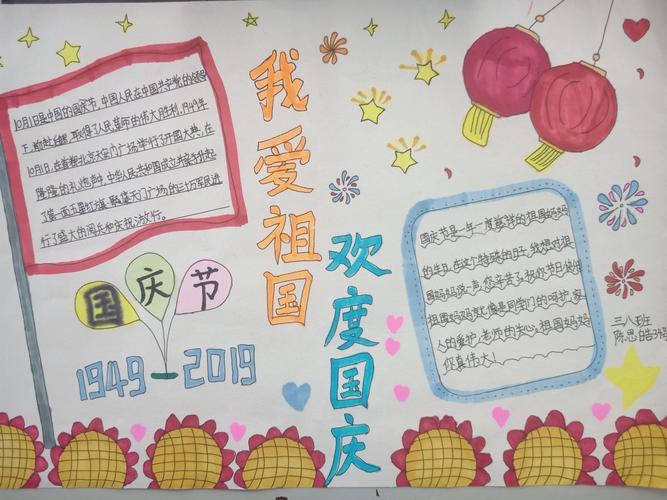 10月1日是中国的国庆节,中国人民在中国共产党的领导
下,前赴后继,取得了人民革命的伟大胜利,1949年
10月1日,在首都北京天安门广场举行了开国大典,在
隆隆的礼炮声中,中华人民共和国成立并亲手升起
了第一面五星红旗,聚集天门广场的三十万军民进
行了盛大的阅兵和庆祝游行。
国庆节
1949 2019
我爱祖国
欢度国庆
国庆节是一年一度慈祥的祖国妈妈
的生日,在这个特殊的日子,我想对祖
国妈妈说一声,您辛苦了,祝你节日快乐
祖国妈妈就像是同学们的呵护,家
人的爱护,老师的关心,祖国妈妈
你真伟大!
三八班
陈思皓